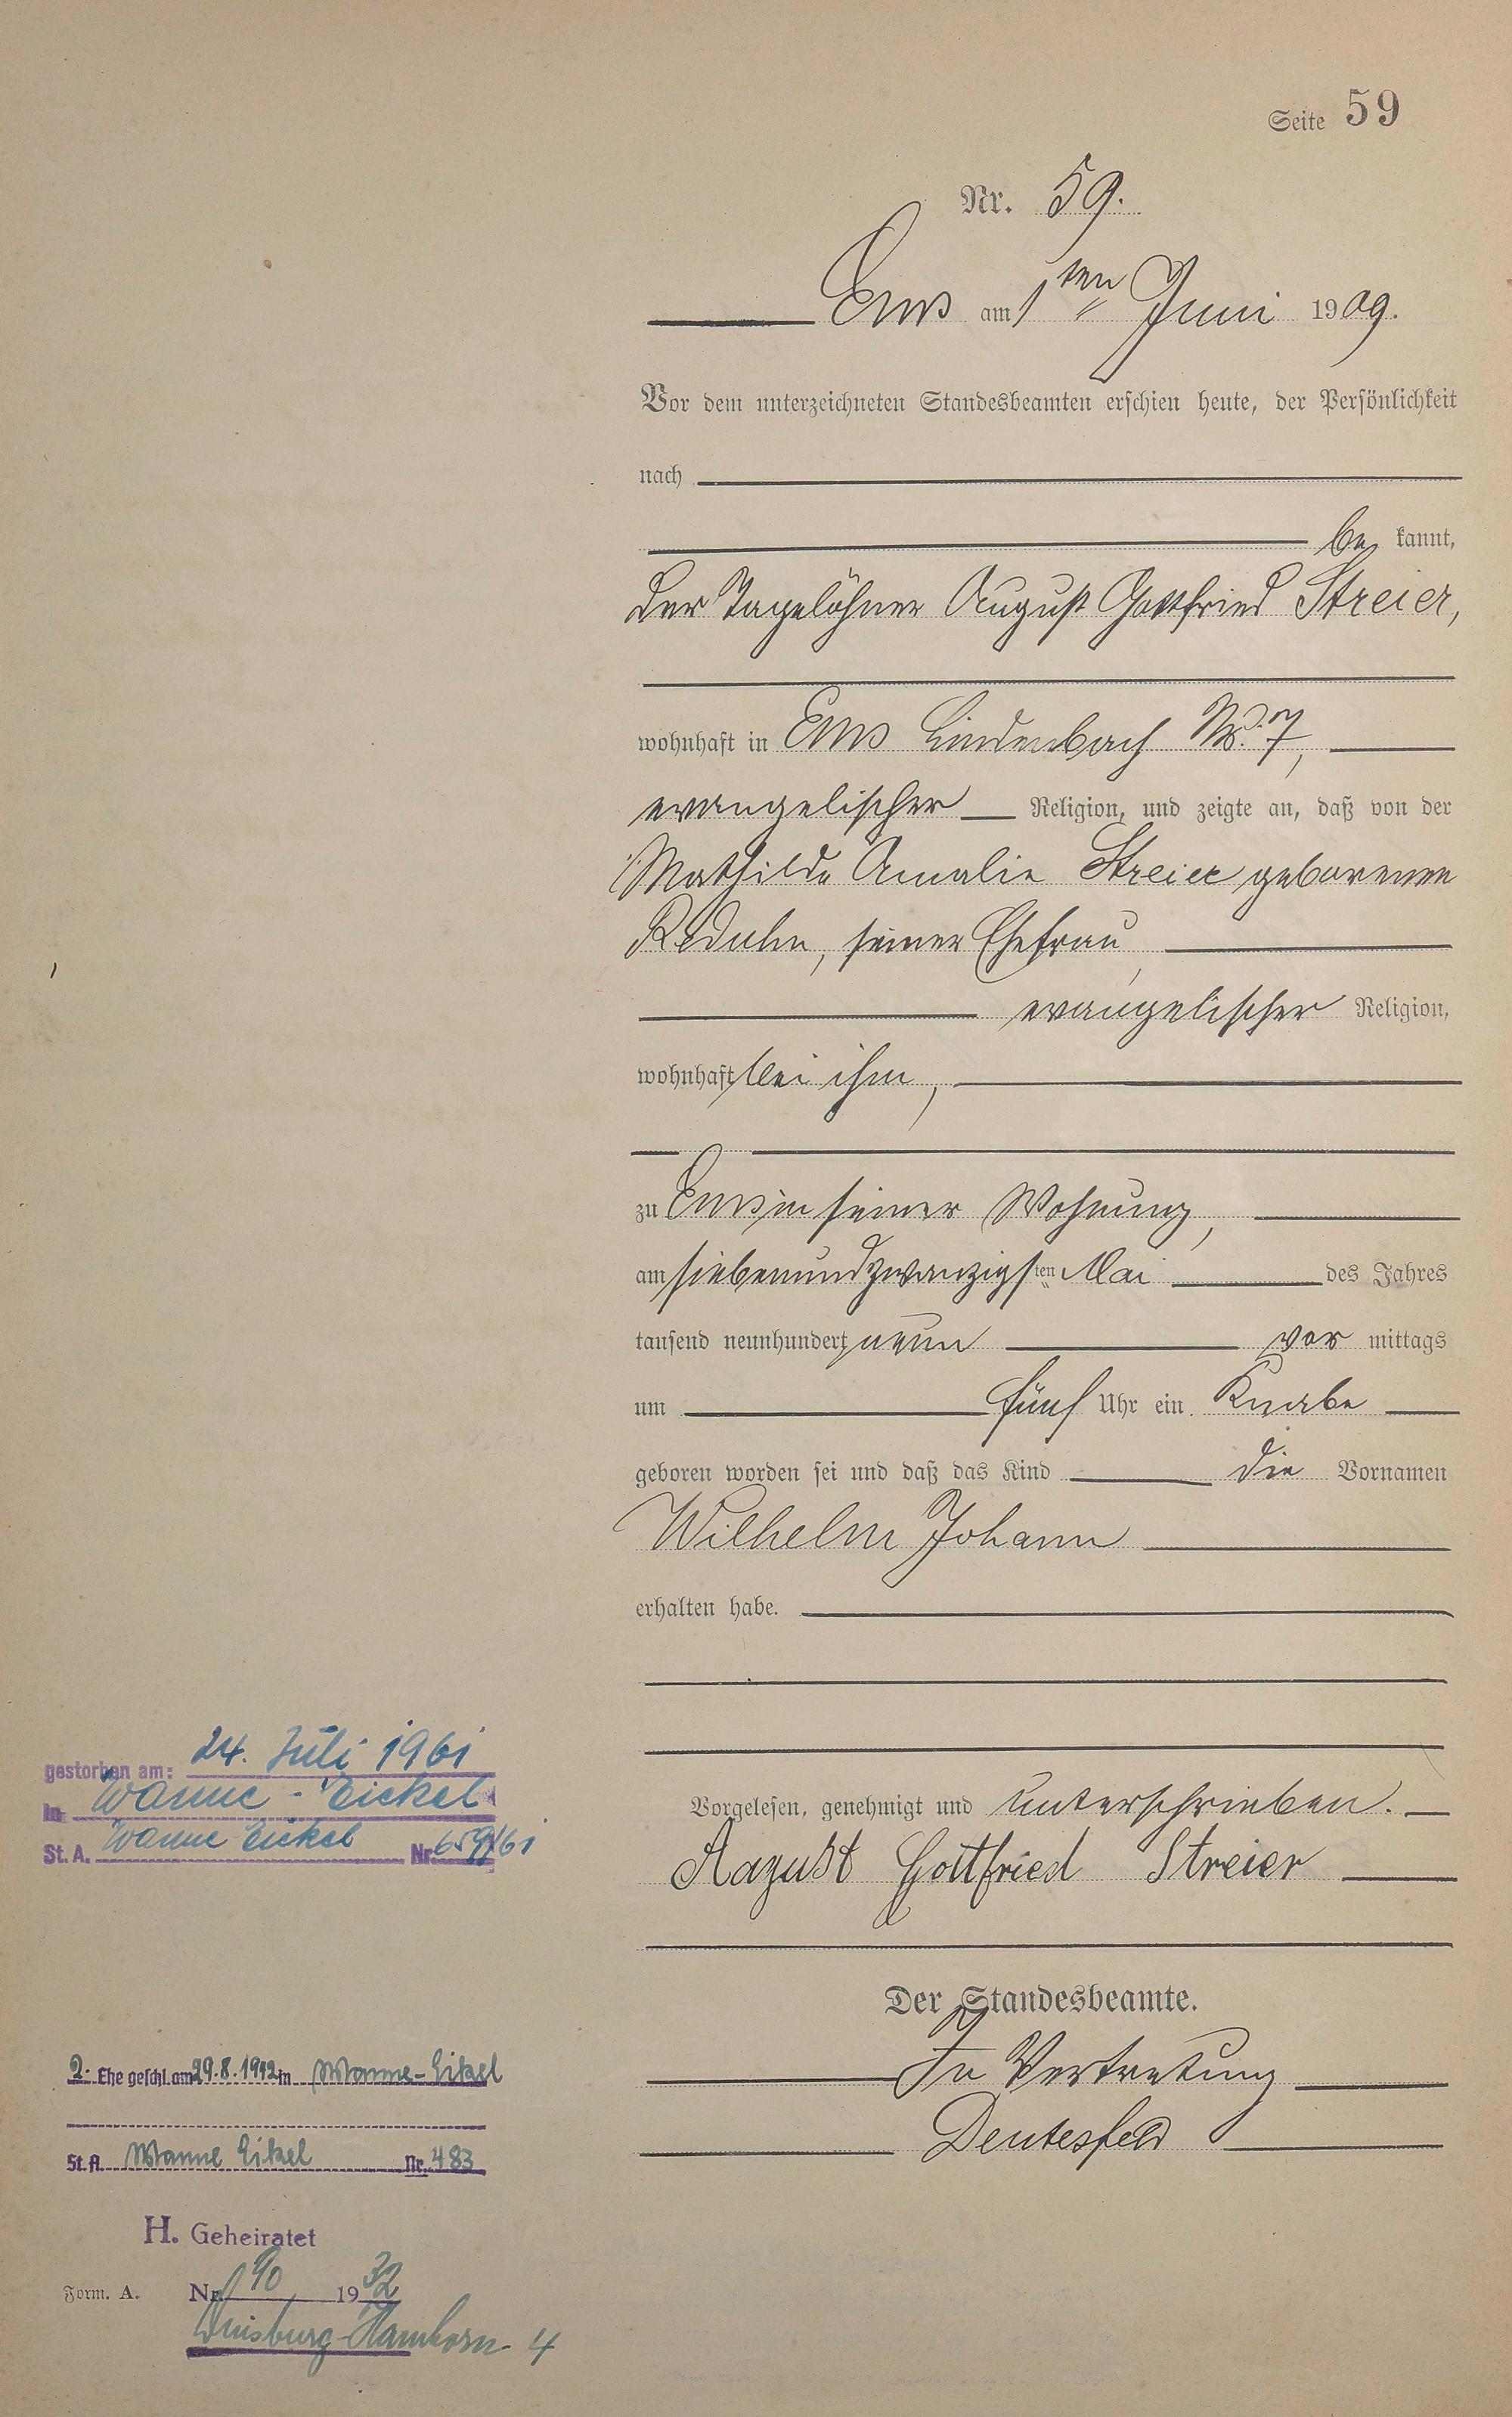 Seite 59
Nr. 59.
Ems am 1ten Juni 1909.
Vor dem unterzeichneten Standesbeamten erschien heute, der Persönlichkeit
nach
be kannt,
der Tagelöhner August Gottfried Streier,
wohnhaft in Ems Lindenbach Nr. 7,
evangelischer Religion, und zeigte an, daß von der
Mathilde Amalie Streier geborenen
seiner Ehefrau,
evangelischer Religion,
wohnhaft bei ihm,
zu Ems in seiner Wohnung,
am siebenundzwanzigsten Mai des Jahres
tausend neunhundert neun vor mittags
um fünf Uhr ein Knabe
geboren worden sei und daß das Kind die Vornamen
Wilhelm Johann
erhalten habe.
Vorgelesen, genehmigt und unterschrieben.
August Gottfried Streier
Der Standesbeamte.
In Vertretung
Deutesfeld
gestorben am: 24. Juli 1961
in Wanne-Eickel
St. A. Wanne Eickel Nr. 659/61
2. Ehe geschl. am 29.8.1942 in Wanne-Eikel
St. A. Wanne Eikel Nr. 483
H. Geheiratet
Form. A. Nr. 190 1932
Duisburg-Hamborn 4